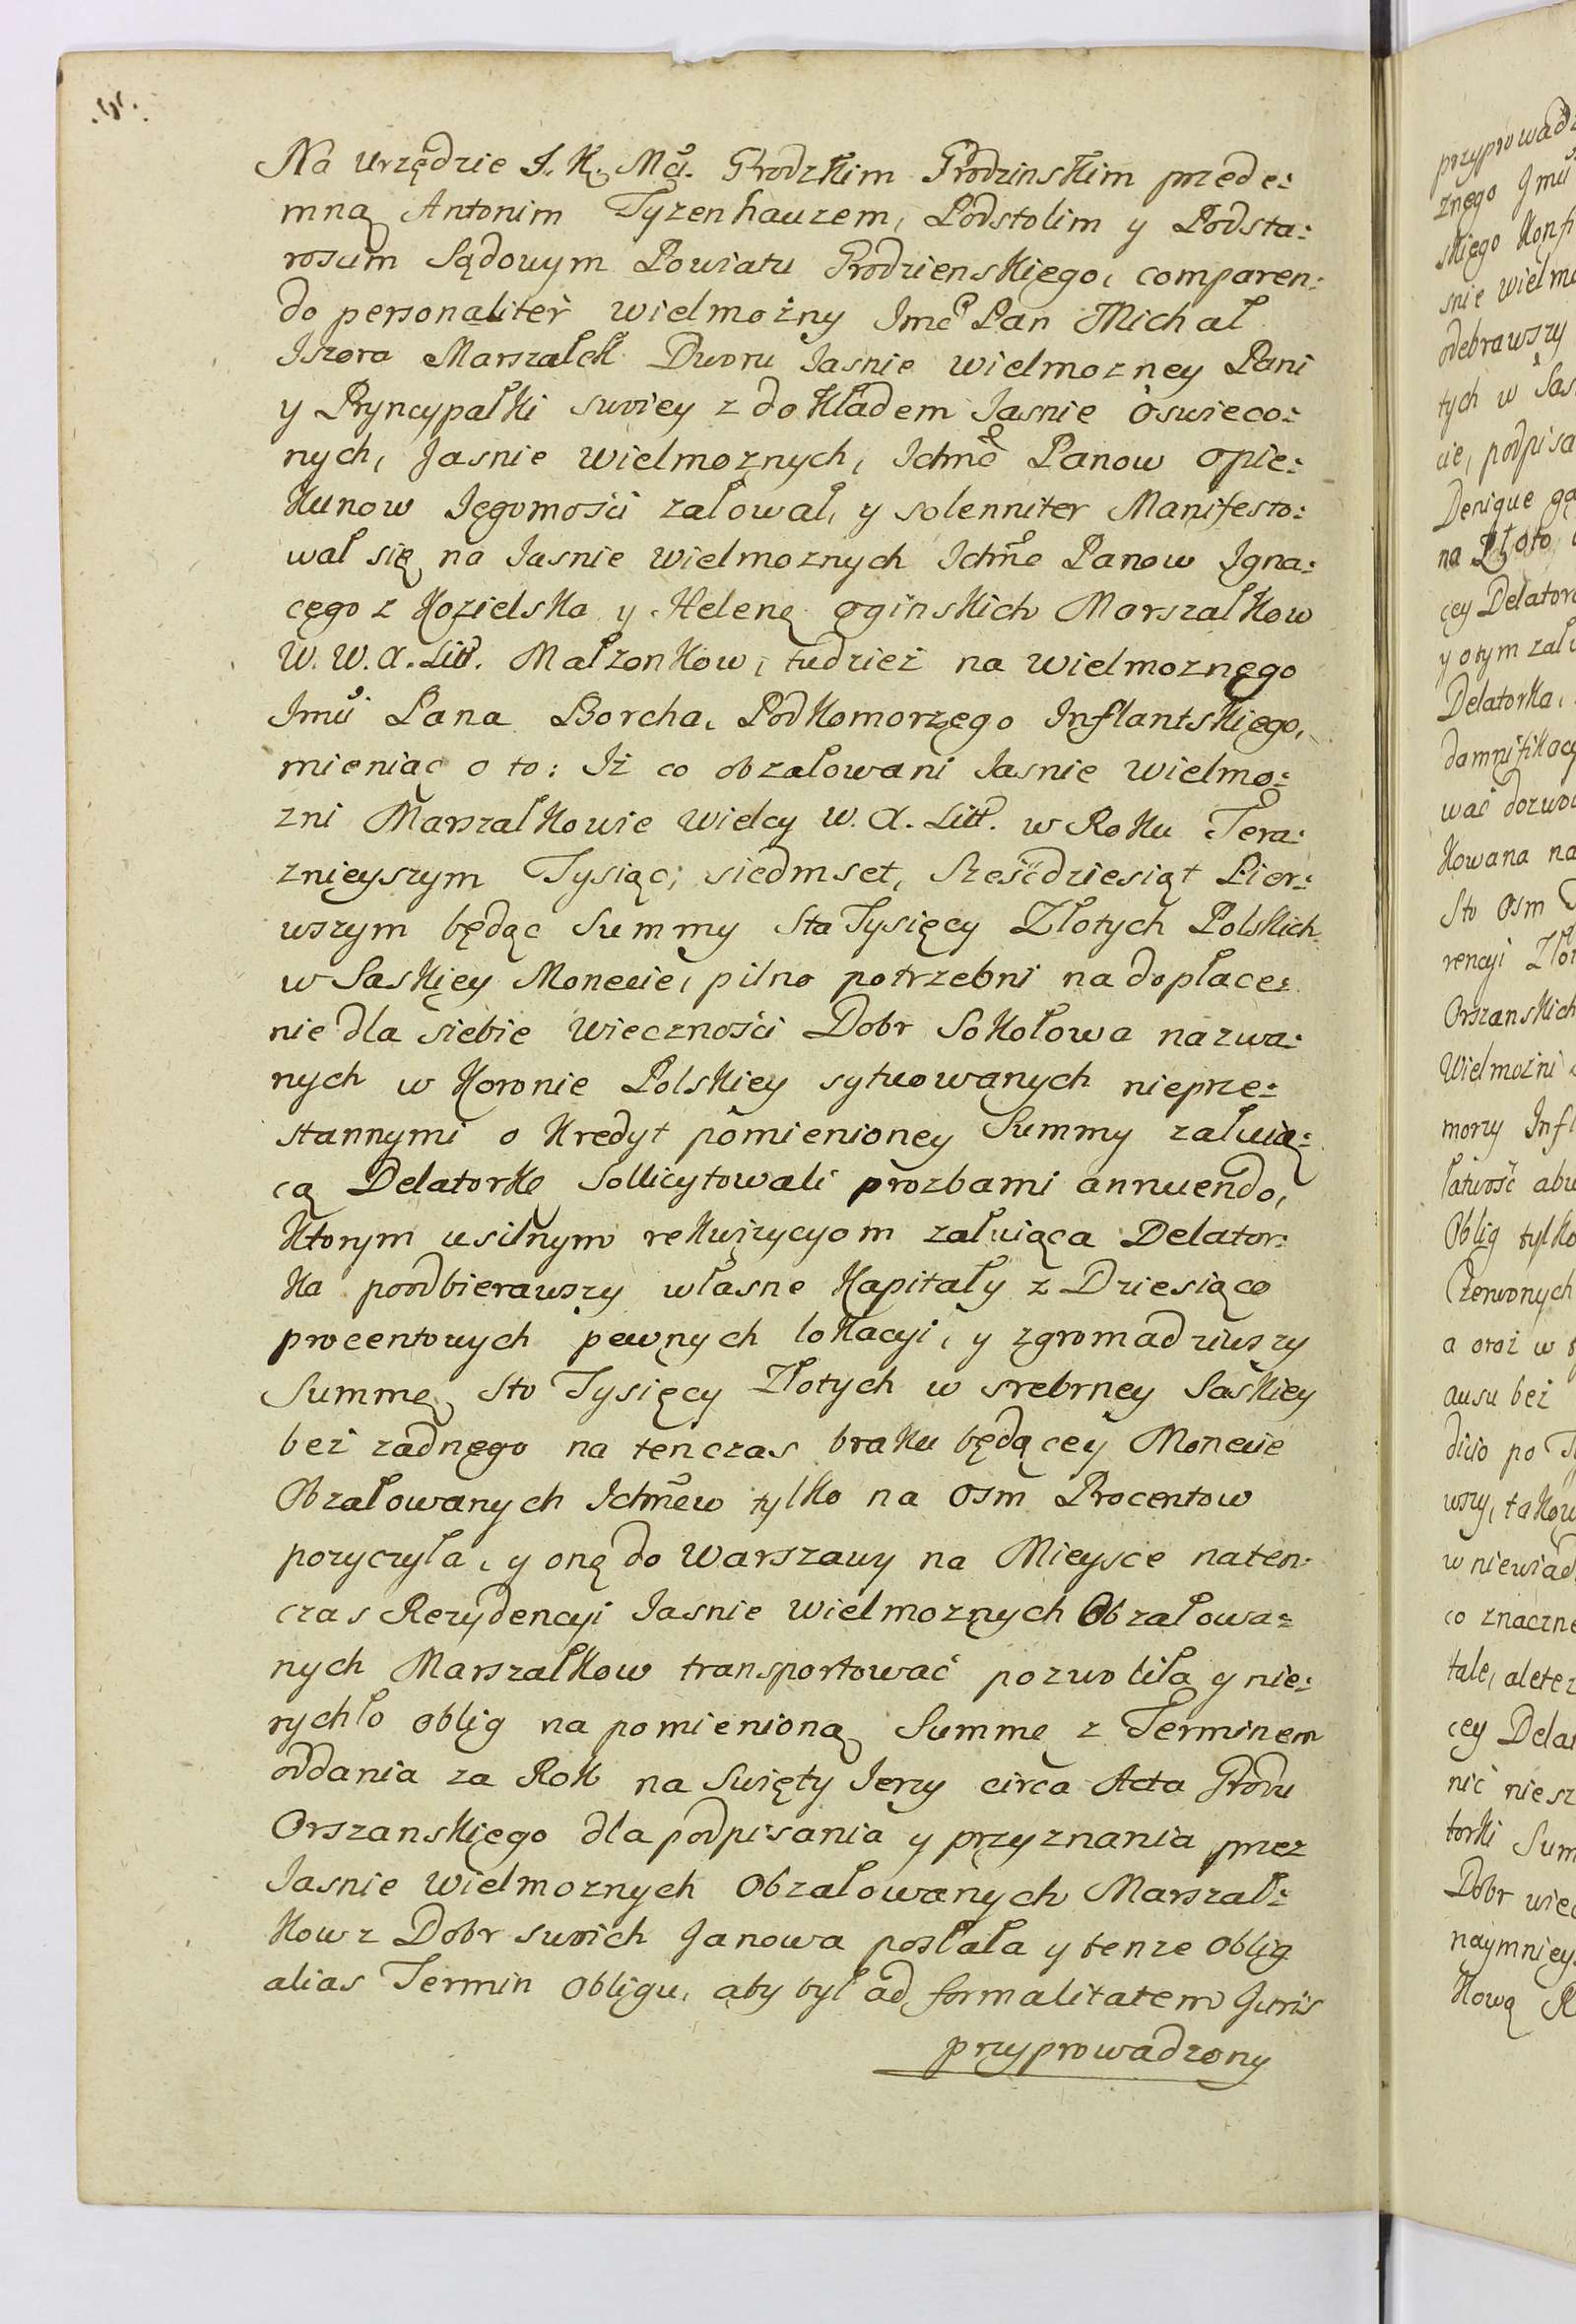 Na Urzędzie J. K. Mći. Grodzkim Grodzinskim przede:
mną Antonim Tyzenhauzem, Podstolim y Podsta:
roscim Sądowym Powiatu Grodzienskięgo, comparen:
do personaliter wielmożny Jmć Pan Michał
Iszora Marszałek Dworu Jasnie wielmozney Pani
y Pryncypałki swoiey z dokładem Jasnie oswieco:
nych, Jasnie wielmożnych, Ichmć Panow opie:
kunow Jęgomości załował, y solenniter Manifesto:
wał się na Jasnie wielmoznych Ichmć Panow Igna:
cęgo z Kozielska y Helenę Oginskich Marszałkow
W. W. X. Litt. Małzonkow, tudzież na wielmoznęgo
Jmći Pana Borcha, Podkomorzęgo Inflantskięgo,
mieniąc o to: Iż co obzałowani Jasnie wielmo:
zni Marszałkowie wielcy W. X. Litt. w Roku Tera:
znięyszym Tysiąc, siedmset, Sześćdziesiąt Pier:
wszym będąc Summy Sta Tysięcy Złotych Polskich
w Saskięy Monecie, pilno potrzebni na dopłace:
nie dla siebie wieczności Dobr Sokołowa nazwa:
nych w Koronie Polskiey sytuowanych nieprze:
stannymi o Kredyt pomienioney Summy załuią:
cą Delatorkę Sollicytowali prozbami annuendo,
Ktorym usilnym rekwizycyom załuiąca Delator:
ka poodbierawszy własne Kapitały z Dziesiąco
procentowych pewnych lokacyi, y zgromadziwszy
Summę Sto Tysięcy Złotych w srebrney Saskiey
beż zadnęgo na tenczas braku będącey Monecie
Obzałowanych Ichmćiow tylko na osm Procentow
pozyczyła, y onę do Warszawy na Mieysce naten:
czas Rezydencyi Jasnie wielmoznych Obzałowa:
nych Marszałkow transportować pozwoliła y nie:
rychło oblig na pomienioną Summę z Terminem
oddania za Rok na Swięty Jerzy circa Acta Grodu
Orszanskięgo dla podpisania y przyznania przez
Jasnie wielmoznych Obzałowanych Marszał:
kow z Dobr swoich Janowa posłała y tenze oblig
alias Termin Obligu, aby był ad formalitatem Juris
przyprowadzony
przyprowadz
znęgo Jmći
skięgo Konf
snie wielmo
odebrawszy
tych w Sas
cie, podpisa
Denique
na Złoto
cęy Delator
y o tym zału
Delatorka,
damnifikacy
wać dozwol
kowana na
Sto Osm
rencyi Zło
Orszanskich
Wielmożni
morzy Infl
łatwość abu
Oblig tylko
Czerwonych
a oraz w
ausu beż
dicio po
wszy, takow
w niewiad
co znaczne
tale, ale tez
cey Dela
nić niesz
torki Sum
Dobr wiec
naymnięy
kową